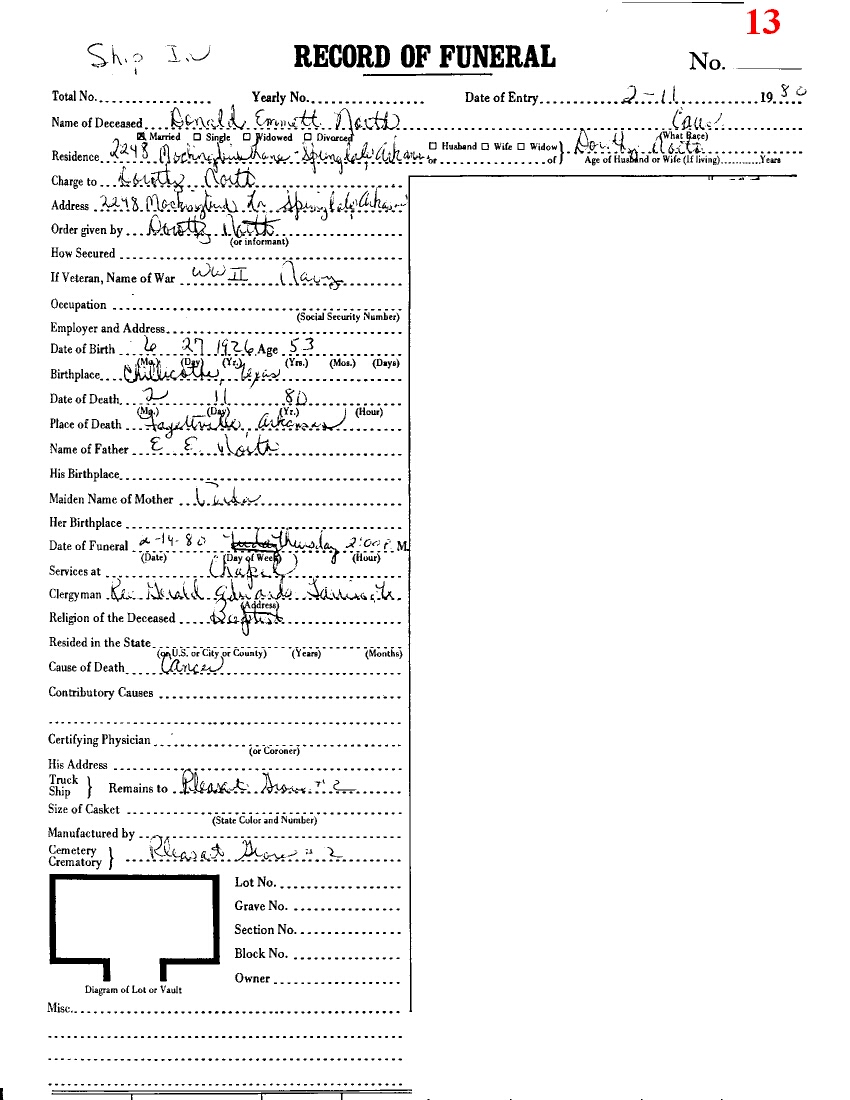 13
Ship In
RECORD OF FUNERAL
No.
Total No. Yearly No. Date of Entry 2-11 19 80
Name of Deceased Donald Emmett North Cauc.
Married Single Widowed Divorced (What Race)
Residence 2248 Mockingbird Lane - Springdale, Arkansas Husband Wife Widow or of Dorothy North
Age of Husband or Wife (If living) Years
Charge to Dorothy North
Address 2248 Mockingbird Ln Springdale, Arkansas
Order given by Dorothy North
(or informant)
How Secured
If Veteran, Name of War WW II Navy
Occupation
(Social Security Number)
Employer and Address
Date of Birth 6 27 1926 Age 53
(Mo.) (Day) (Yr.) (Yrs.) (Mos.) (Days)
Birthplace Chillicothe, Texas
Date of Death 2 11 80
(Mo.) (Day) (Yr.) (Hour)
Place of Death Fayetteville, Arkansas
Name of Father E E North
His Birthplace
Maiden Name of Mother
Her Birthplace
Date of Funeral 2-14-80 Thursday 2:00 P. M.
(Date) (Day of Week) (Hour)
Services at Chapel
Clergyman Rev. Gerald Edwards
(Address)
Religion of the Deceased Baptist
Resided in the State
(or U.S. or City or County) (Years) (Months)
Cause of Death Cancer
Contributory Causes
Certifying Physician
(or Coroner)
His Address
Truck
Ship Remains to Pleasant Grove #2
Size of Casket
(State Color and Number)
Manufactured by
Cemetery
Crematory Pleasat Grove #2
Lot No.
Grave No.
Section No.
Block No.
Owner
Diagram of Lot or Vault
Misc.